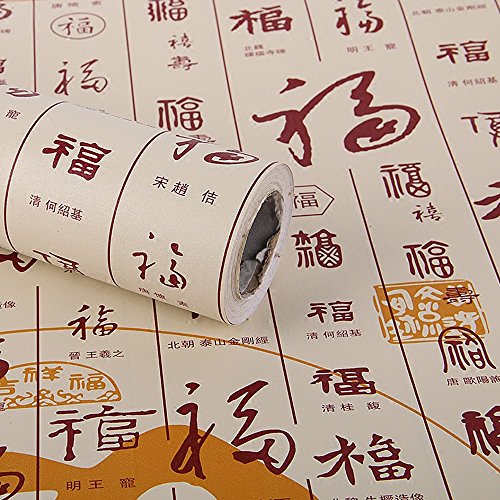 福
唐 懷 素
福
禧
壽
福
福
北魏
暉福寺碑
福
明 王 寵
福
北朝 泰山金剛經
福
清 何紹基
福
寵
福
清 何紹基
福
宋 趙 佶
福
唐 懷 素
福
福
禧
福
壽
福
晉 王羲之
北朝 泰山金剛經
福
清 何紹基
福
唐 歐陽詢
吉祥福
福
福
清 桂 馥
福
福
明 王 寵
唐 懷 素
福
北魏 牛橛造像